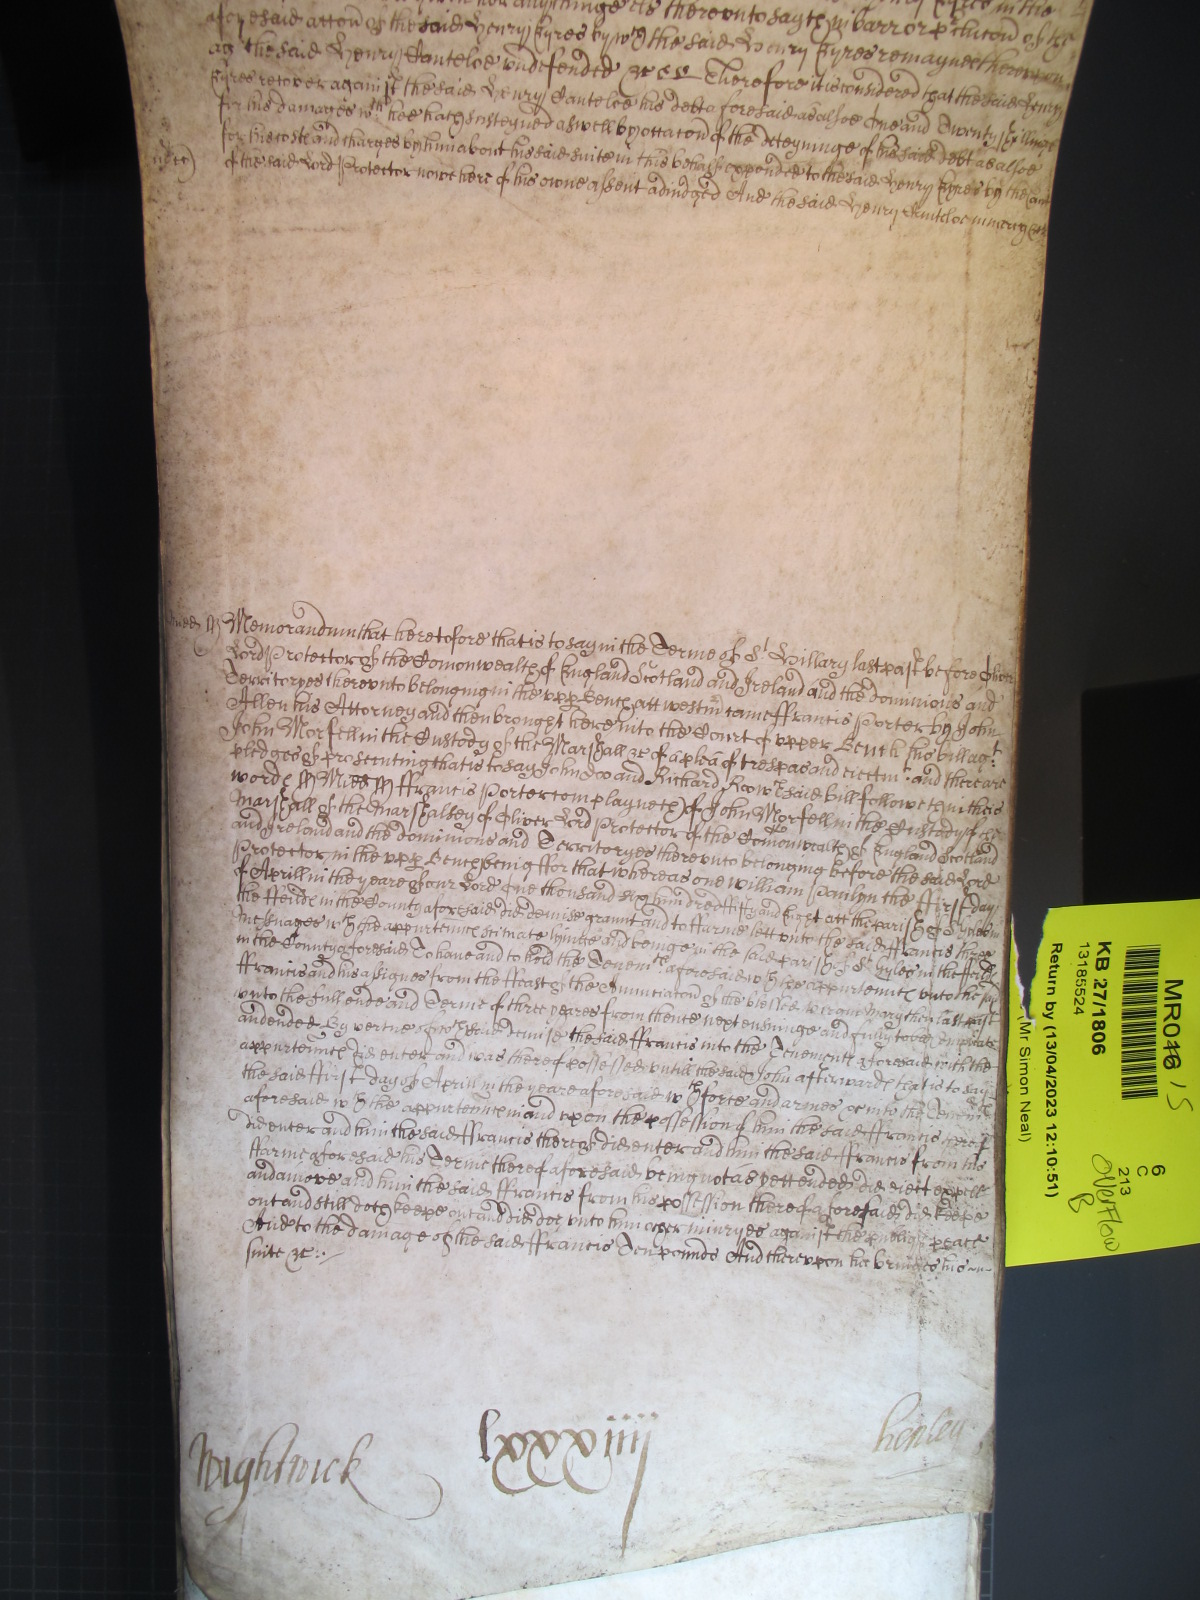 aforesaid accon of the said Henry Eyres by wch the said Henry Eyres remaynes thereupon
agt the said Henry Santeloe undefended &c Therefore it is considered that the said Henry
Eyres recover against the said Henry Santeloe his debt aforesaid as alsoe One and Twenty shillings
for his damages wch hee hath susteyned as well by occacon of the deteyninge of his said debt as alsoe
for his costs and charges by him about his said suite in this behalf expended to the said Henry Eyres by the Court
of the said Lord Protector nowe here of his owne assent adiudged And the said Henry Santeloe in mercy &c
Memorandum that heretofore that is to say in the Terme of St Hillary last past before Oliver
Lord Protector of the Comonwealth of England Scotland and Ireland and the dominions and
Territoryes thereunto belonging in the upp Bench att westm came ffrancis Porter by John
Allen his Attorney and then brought here into the Court of upper Bench his bill agt
John Morfell in the Custody of the Marshall &c of a plea of trespas and eiectmt and there are
pledges of prosecuting that is to say John Doo and Richard Roo wch said bill followeth in theis
words ss Midd ss ffrancis Porter complayneth of John Morfell in the Custody of the
Marshall of the Marshalsey of Oliver Lord Protector of the Comonwealth of England Scotland
and Ireland and the dominions and Territoryes thereunto belonging before the said Lord
Protector in the upp Bench being ffor that whereas one william Paulyn the ffirst day
of Aprill in the yeare of our Lord One thousand six hundred ffifty and Eight att the parish of St Gyles in
the ffeilds in the County aforesaid did demise graunt and to ffarme lett unto the said ffrancis three
Messuages wth the appurtenncs scituate lyinge and beinge in the said parish of St Gyles in the ffeilds
in the County aforesaid To have and to hold the Tenemts aforesaid wth the appurtenncs unto the said
ffrancis and his assignes from the ffeast of the Annunciacon of the blessed virgin Mary then last past
unto the full ende and Terme of three yeares from thence next ensuinge and fully to be compleate
and ended By vertue of wch said demise the said ffrancis into the Tenements aforesaid with the
appurtenncs did enter and was thereof possessed untill the said John afterwards that is to say
the said ffirst day of Aprill in the yeare aforesaid wth force and armes &c into the Tenemts
aforesaid wth the appurtenncs in and upon the possession of him the said ffrancis thereof
did enter and him the said ffrancis thereof did enter and him the said ffrancis from his
ffarme aforesaid his Terme thereof aforesaid being not as yett ended did eiect expell
and amove and him the said ffrancis from his possession thereof aforesaid did keepe
out and still doth keepe out and did doe unto him other iniuryes against the publique peace
And to the damage of the said ffrancis Ten pounds And thereupon hee bringes his
suite &c
Wightwick
lxxxiiij
henley
MR046 / S
KB 27/1806
13185524
Return by (13/04/2023 12:10:51)
(Mr Simon Neal)
6
C
213
Overflow
B